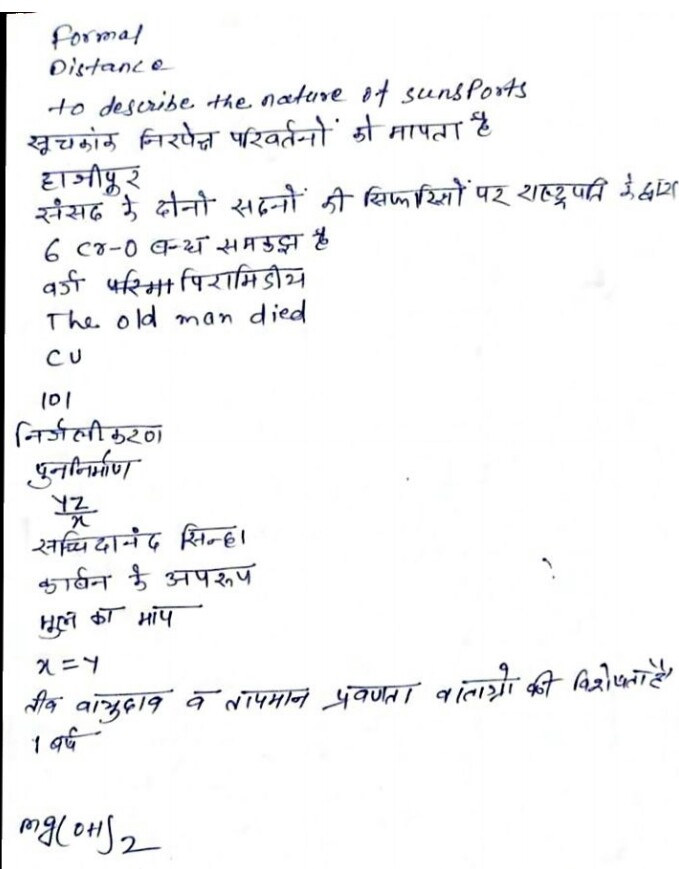 Formal
Distance
to describe the nature of sunsports
सूचकांक निरपेक्ष परिवर्तनों को मापता है
हाजीपूर
संसद के दोनो सदनों की सिफारिसों पर राष्ट्रपति के द्वारा
6 Cr-O बन्ध समतुल्य है
वर्ग पिरामिडीय
The old man died
CU
101
निर्जलीकरण
पुननिर्माण
YZ/x
सच्चिदानंद सिन्हा
कार्बन के अपरूप
का माप
x = y
तीव्र वायुदाव व तापमान प्रवणता वाताग्रो की विशेषता है
1 वर्ष
mg(OH)2